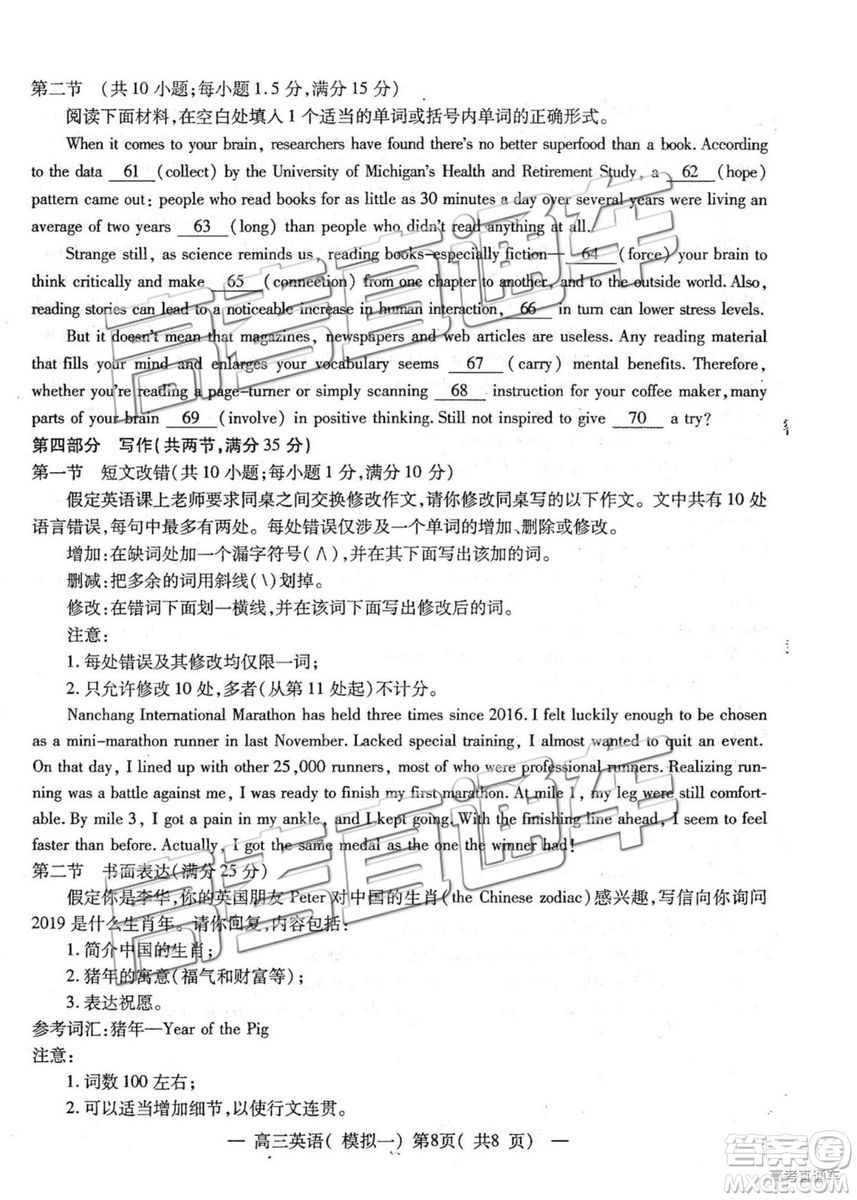 第二节 (共10小题;每小题1.5分,满分15分)
阅读下面材料,在空白处填入1个适当的单词或括号内单词的正确形式。
When it comes to your brain, researchers have found there's no better superfood than a book. According
to the data 61 (collect) by the University of Michigan's Health and Retirement Study, a 62 (hope)
pattern came out: people who read books for as little as 30 minutes a day over several years were living an
average of two years 63 (long) than people who didn't read anything at all.
Strange still, as science reminds us, reading books-especially fiction— 64 (force) your brain to
think critically and make 65 (connection) from one chapter to another, and to the outside world. Also,
reading stories can lead to a noticeable increase in human interaction, 66 in turn can lower stress levels.
But it doesn't mean that magazines, newspapers and web articles are useless. Any reading material
that fills your mind and enlarges your vocabulary seems 67 (carry) mental benefits. Therefore,
whether you're reading a page-turner or simply scanning 68 instruction for your coffee maker, many
parts of your brain 69 (involve) in positive thinking. Still not inspired to give 70 a try?
第四部分 写作(共两节,满分35分)
第一节 短文改错(共10小题;每小题1分,满分10分)
假定英语课上老师要求同桌之间交换修改作文,请你修改同桌写的以下作文。文中共有10处
语言错误,每句中最多有两处。每处错误仅涉及一个单词的增加、删除或修改。
增加:在缺词处加一个漏字符号(∧),并在其下面写出该加的词。
删减:把多余的词用斜线(\)划掉。
修改:在错词下面划一横线,并在该词下面写出修改后的词。
注意:
1.每处错误及其修改均仅限一词;
2.只允许修改10处,多者(从第11处起)不计分。
Nanchang International Marathon has held three times since 2016. I felt luckily enough to be chosen
as a mini-marathon runner in last November. Lacked special training, I almost wanted to quit an event.
On that day, I lined up with other 25,000 runners, most of who were professional runners. Realizing run-
ning was a battle against me, I was ready to finish my first marathon. At mile 1, my leg were still comfort-
able. By mile 3, I got a pain in my ankle, and I kept going. With the finishing line ahead, I seem to feel
faster than before. Actually, I got the same medal as the one the winner had!
第二节 书面表达(满分25分)
假定你是李华,你的英国朋友Peter对中国的生肖(the Chinese zodiac)感兴趣,写信向你询问
2019是什么生肖年。请你回复,内容包括:
1.简介中国的生肖;
2.猪年的寓意(福气和财富等);
3.表达祝愿。
参考词汇:猪年—Year of the Pig
注意:
1.词数100左右;
2.可以适当增加细节,以使行文连贯。
— 高三英语( 模拟一) 第8页( 共8 页) —
高考直通车
高考直通车
高考直通车
答案圈
MXQE.COM
高考直通车